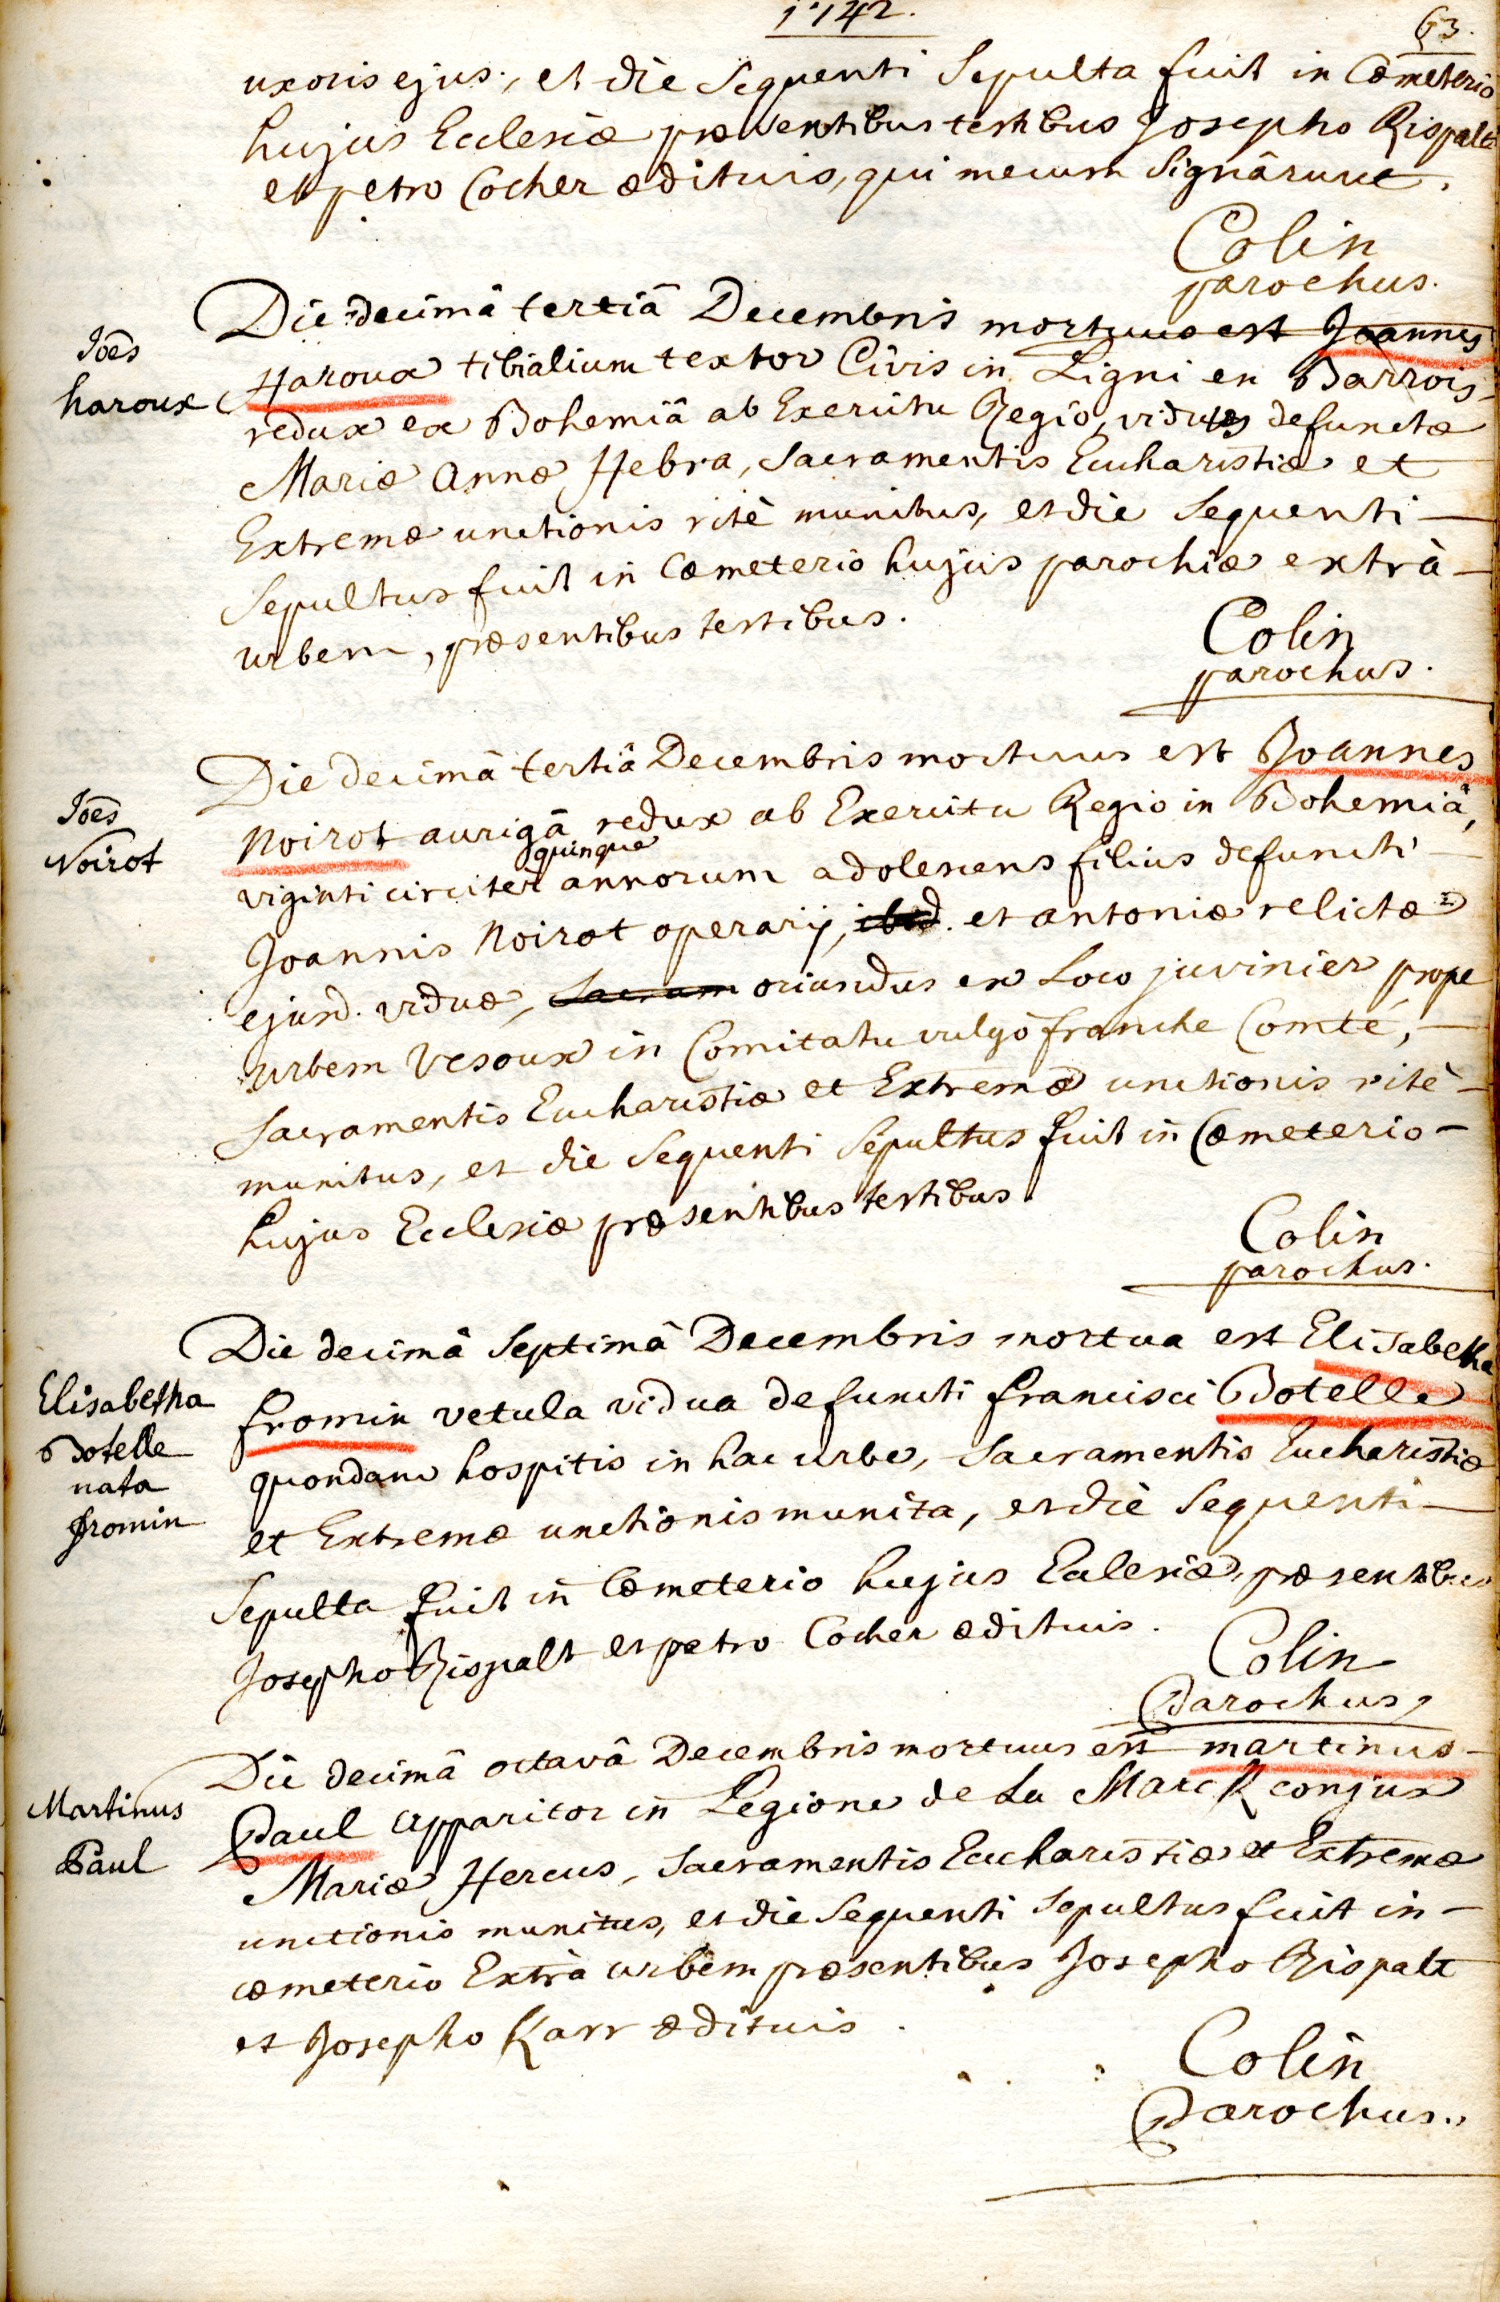 1742.
63.
uxoris ejus, et die Sequenti Sepulta fuit in Cœmeterio
hujus Ecclesiæ præsentibus testibus Josepho Rispalt
et petro Cocher ædituis, qui mecum Signârunt.
Colin
parochus.
Joēs
haroux
Die decimâ tertiâ Decembris mortuus est Joannes
Haroux tibialium textor Civis in Ligni en Barrois,
redux ex Bohemiâ ab Exercitu Regio, viduus defunctæ
Mariæ Annæ Hebra, Sacramentis Eucharistiæ et
Extremæ unctionis ritè munitus, et die Sequenti
Sepultus fuit in Cœmeterio hujus parochiæ extrà
urbem, præsentibus testibus.
Colin
parochus.
Joēs
Noirot
Die decimâ tertiâ Decembris mortuus est Joannes
Noirot aurigâ redux ab Exercitu Regio in Bohemiâ,
quinque
viginti circiter annorum adolescens filius defuncti
Joannis Noirot operarij, ibid. et antoniæ relictæ
ejusd. viduæ, Sacram oriundus ex Loco juvinier prope
urbem Vesoux in Comitatu vulgò franche Comté,
Sacramentis Eucharistiæ et Extremæ unctionis ritè
munitus, et die Sequenti Sepultus fuit in Cœmeterio
hujus Ecclesiæ præsentibus testibus.
Colin
parochus.
Elisabetha
Botelle
nata
fromin
Die decimâ Septimâ Decembris mortua est Elisabetha
fromin vetula vidua defuncti francisci Botelle
quondam hospitis in hac urbe, Sacramentis Eucharistiæ
et Extremæ unctionis munita, et die Sequenti
Sepulta fuit in Cœmeterio hujus Ecclesiæ, præsentibus
Josepho Rispalt et petro Cocher ædituis.
Colin
Parochus,
Martinus
Paul
Die decimâ octavâ Decembris mortuus est martinus
Paul Apparitor in Legione de La Marck conjux
Mariæ Hercus, Sacramentis Eucharistiæ et Extremæ
unctionis munitus, et die Sequenti Sepultus fuit in
cœmeterio Extrà urbem præsentibus Josepho Rispalt
et Josepho Karr ædituis.
Colin
Parochus.